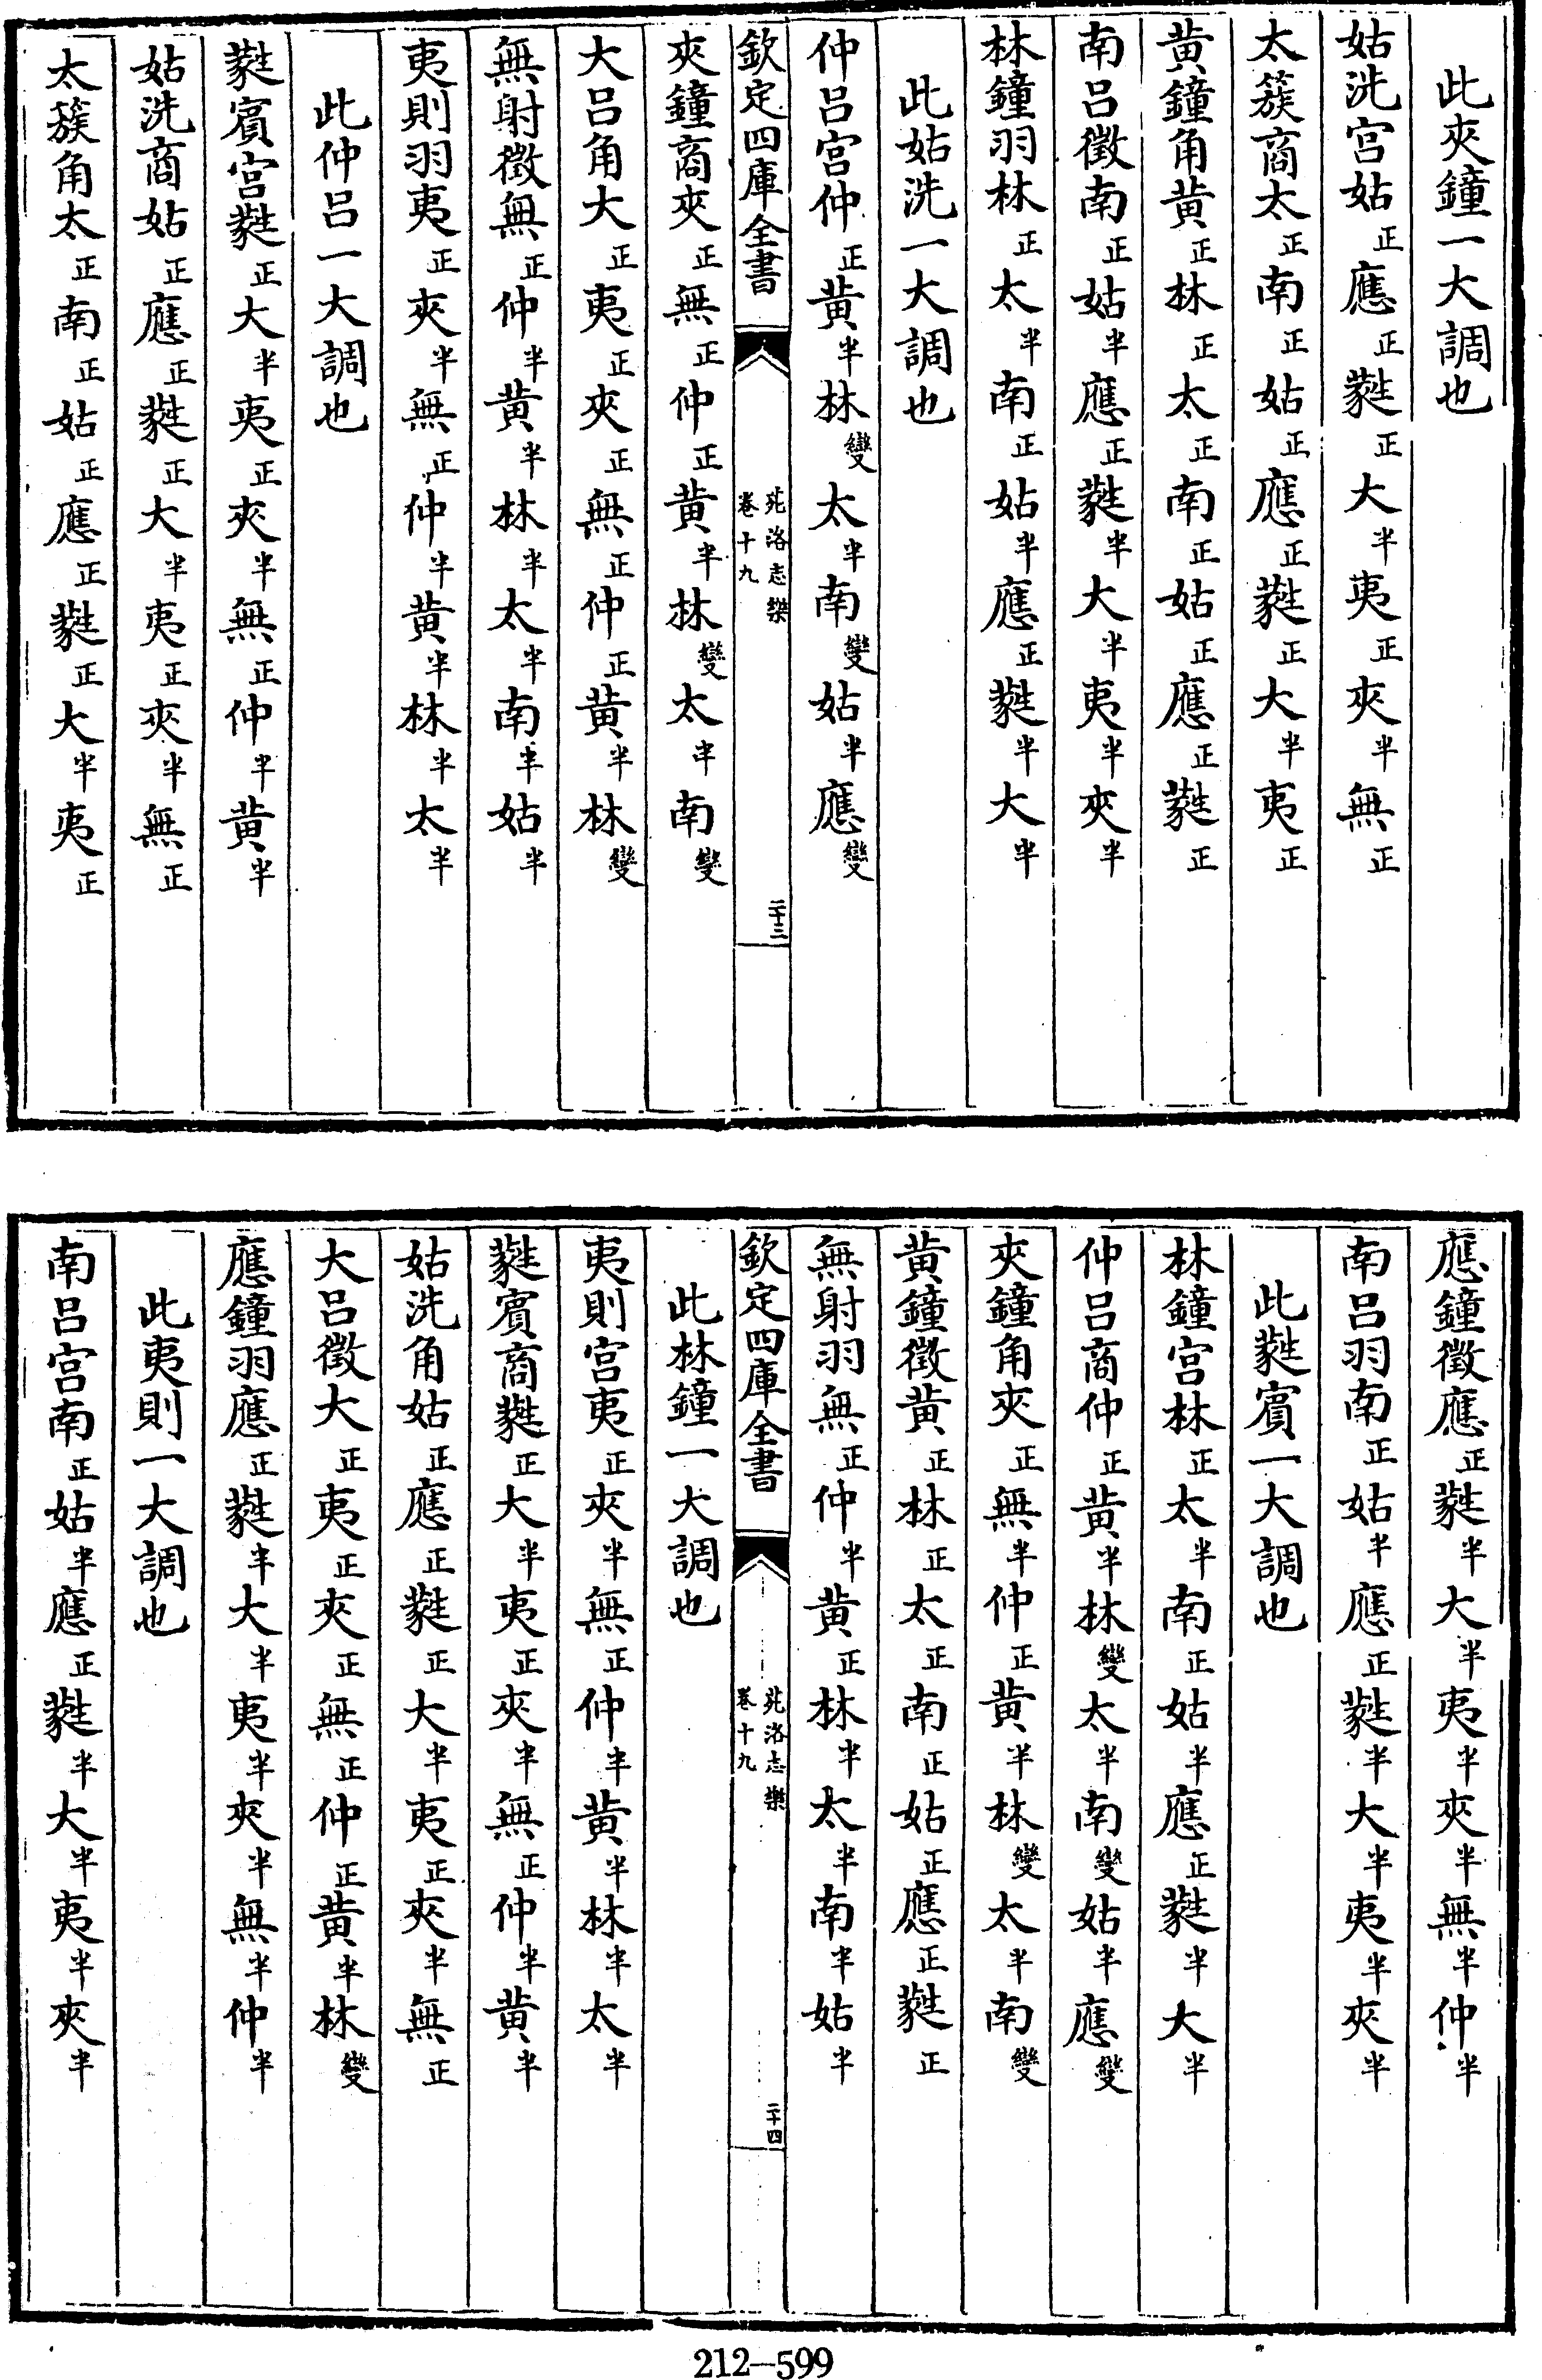 此夾鐘一大調也
姑洗宫姑正應正蕤正大半夷正夾半無正
太簇商太正南正姑正應正蕤正大半夷正
黄鐘角黄正林正太正南正姑正應正蕤正
南呂徵南正姑半應正蕤半大半夷半夾半
林鐘羽林正太半南正姑半應正蕤半大半
此姑洗一大調也
仲呂宫仲正黄半林變太半南變姑半應變
欽定四庫全書
苑洛志樂
卷十九
二十三
夾鐘商夾正無正仲正黄半林變太半南變
大呂角大正夷正夾正無正仲正黄半林變
無射徵無正仲半黄半林半太半南半姑半
夷則羽夷正夾半無正仲半黄半林半太半
此仲呂一大調也
蕤賓宫蕤正大半夷正夾半無正仲半黄半
姑洗商姑正應正蕤正大半夷正夾半無正
太簇角太正南正姑正應正蕤正大半夷正
應鐘徵應正蕤半大半夷半夾半無半仲半
南呂羽南正姑半應正蕤半大半夷半夾半
此蕤賓一大調也
林鐘宫林正太半南正姑半應正蕤半大半
仲呂商仲正黄半林變太半南變姑半應變
夾鐘角夾正無半仲正黄半林變太半南變
黄鐘徵黄正林正太正南正姑正應正蕤正
無射羽無正仲半黄正林半太半南半姑半
欽定四庫全書
苑洛志樂
卷十九
二十四
此林鐘一大調也
夷則宫夷正夾半無正仲半黄半林半太半
蕤賓商蕤正大半夷正夾半無正仲半黄半
姑洗角姑正應正蕤正大半夷正夾半無正
大呂徵大正夷正夾正無正仲正黄半林變
應鐘羽應正蕤半大半夷半夾半無半仲半
此夷則一大調也
南呂宫南正姑半應正蕤半大半夷半夾半
212—599